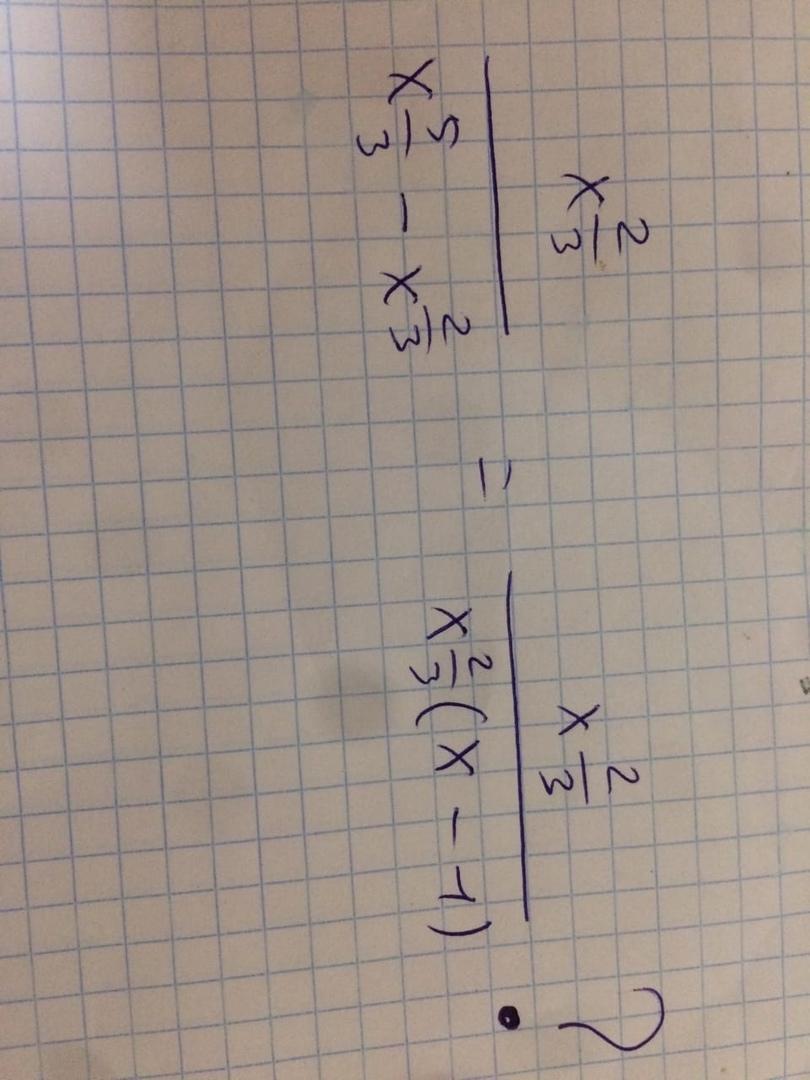 x^{\frac{2}{3}} / (x^{\frac{5}{3}} - x^{\frac{2}{3}}) = x^{\frac{2}{3}} / (x^{\frac{2}{3}}(x - 1)) ?